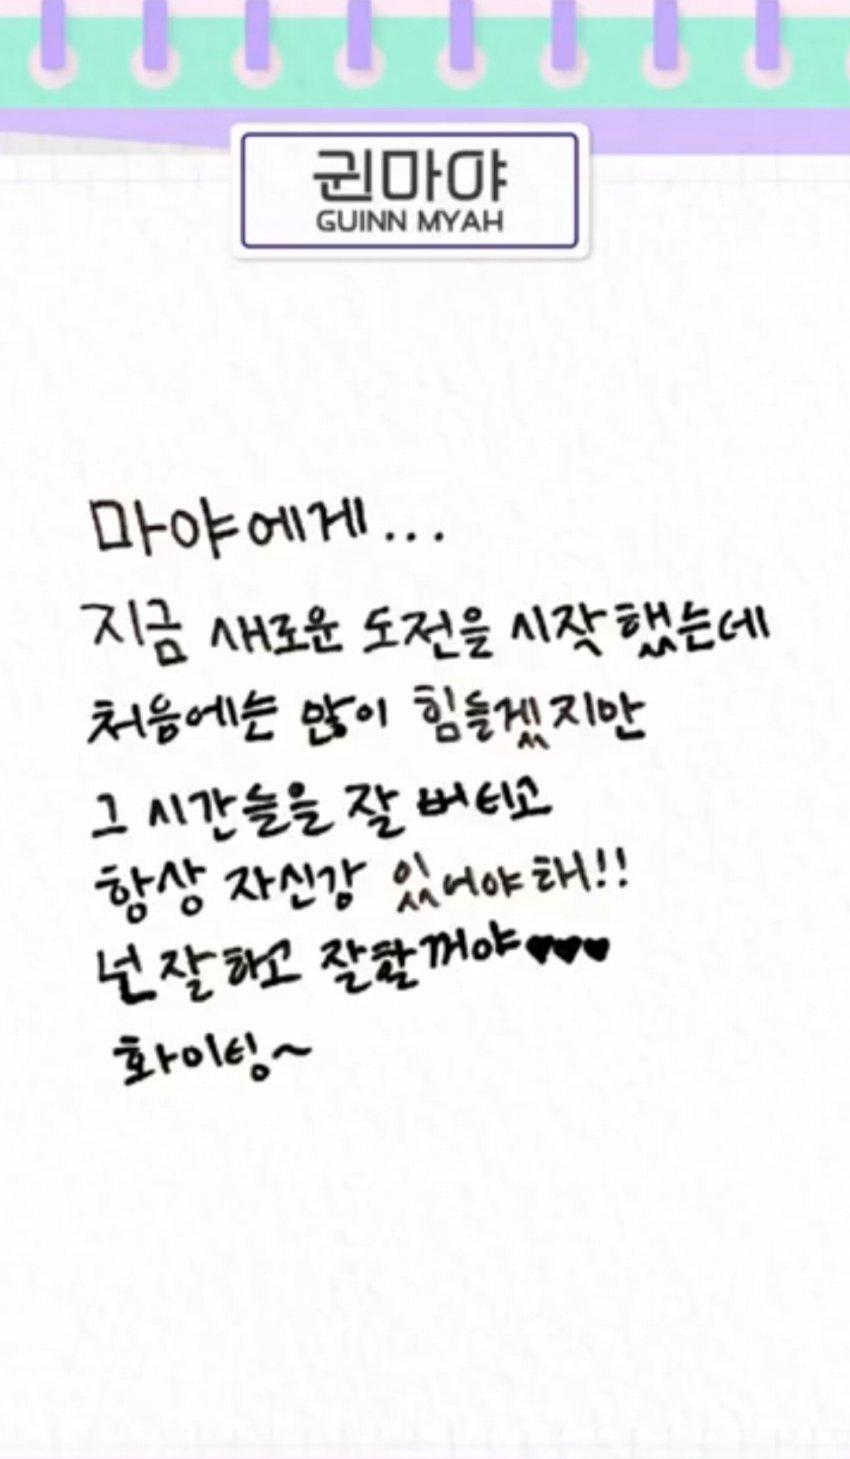 귄마야
GUINN MYAH
마야에게...
지금 새로운 도전을 시작했는데
처음에는 많이 힘들겠지만
그 시간들을 잘 버티고
항상 자신감 있어야해!!
넌 잘하고 잘할꺼야♥♥♥
화이팅~